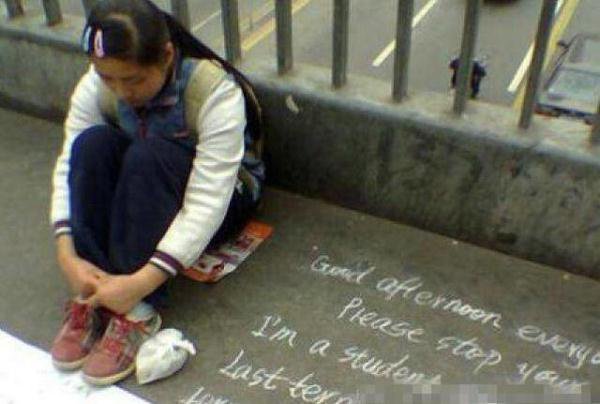 Good afternoon
Please stop your
I'm a student
Last term